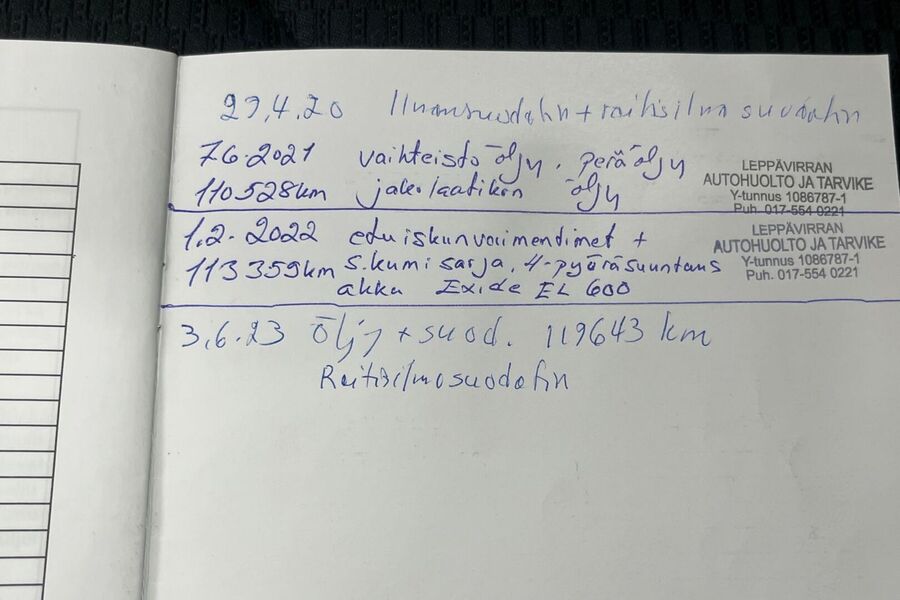 29.4.20 Ilmansuodatin + raitisilmasuodatin
7.6.2021 vaihteistoöljy, peräöljy
110528km jakolaatikon öljy
LEPPÄVIRRAN
AUTOHUOLTO JA TARVIKE
Y-tunnus 1086787-1
Puh. 017-554 0221
1.2.2022 etuiskunvaimentimet +
113359km s.kumisarja, 4-pyöräsuuntaus
akku Exide EL 600
LEPPÄVIRRAN
AUTOHUOLTO JA TARVIKE
Y-tunnus 1086787-1
Puh. 017-554 0221
3.6.23 Öljy + suod. 119643 km
Raitisilmasuodatin